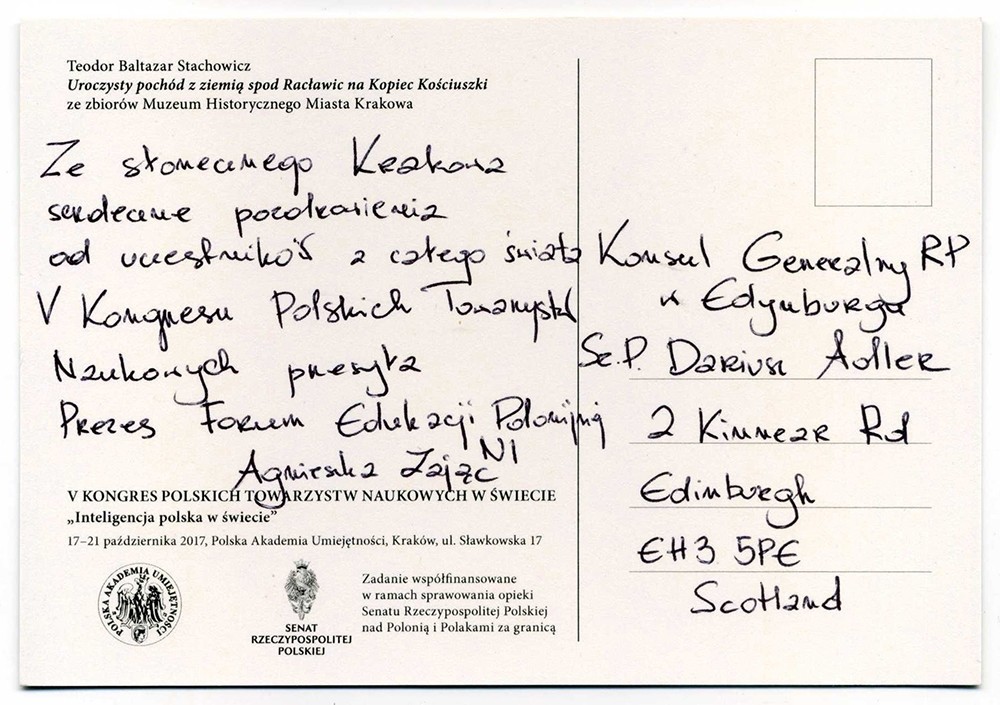 Teodor Baltazar Stachowicz
Uroczysty pochód z ziemią spod Racławic na Kopiec Kościuszki
ze zbiorów Muzeum Historycznego Miasta Krakowa
Ze słonecznego Krakowa
serdeczne pozdrowienia
od uczestników z całego świata
V Kongresu Polskich Towarzystw
Naukowych przesyła
Prezes Forum Edukacji Polonijnej
NI
Agnieszka Zając
V KONGRES POLSKICH TOWARZYSTW NAUKOWYCH W ŚWIECIE
„Inteligencja polska w świecie”
17–21 października 2017, Polska Akademia Umiejętności, Kraków, ul. Sławkowska 17
POLSKA AKADEMIA UMIEJĘTNOŚCI
SENAT
RZECZYPOSPOLITEJ
POLSKIEJ
Zadanie współfinansowane
w ramach sprawowania opieki
Senatu Rzeczypospolitej Polskiej
nad Polonią i Polakami za granicą
Konsul Generalny RP
w Edynburgu
Sz.P. Dariusz Adler
2 Kinnear Rd
Edinburgh
EH3 5PE
Scotland